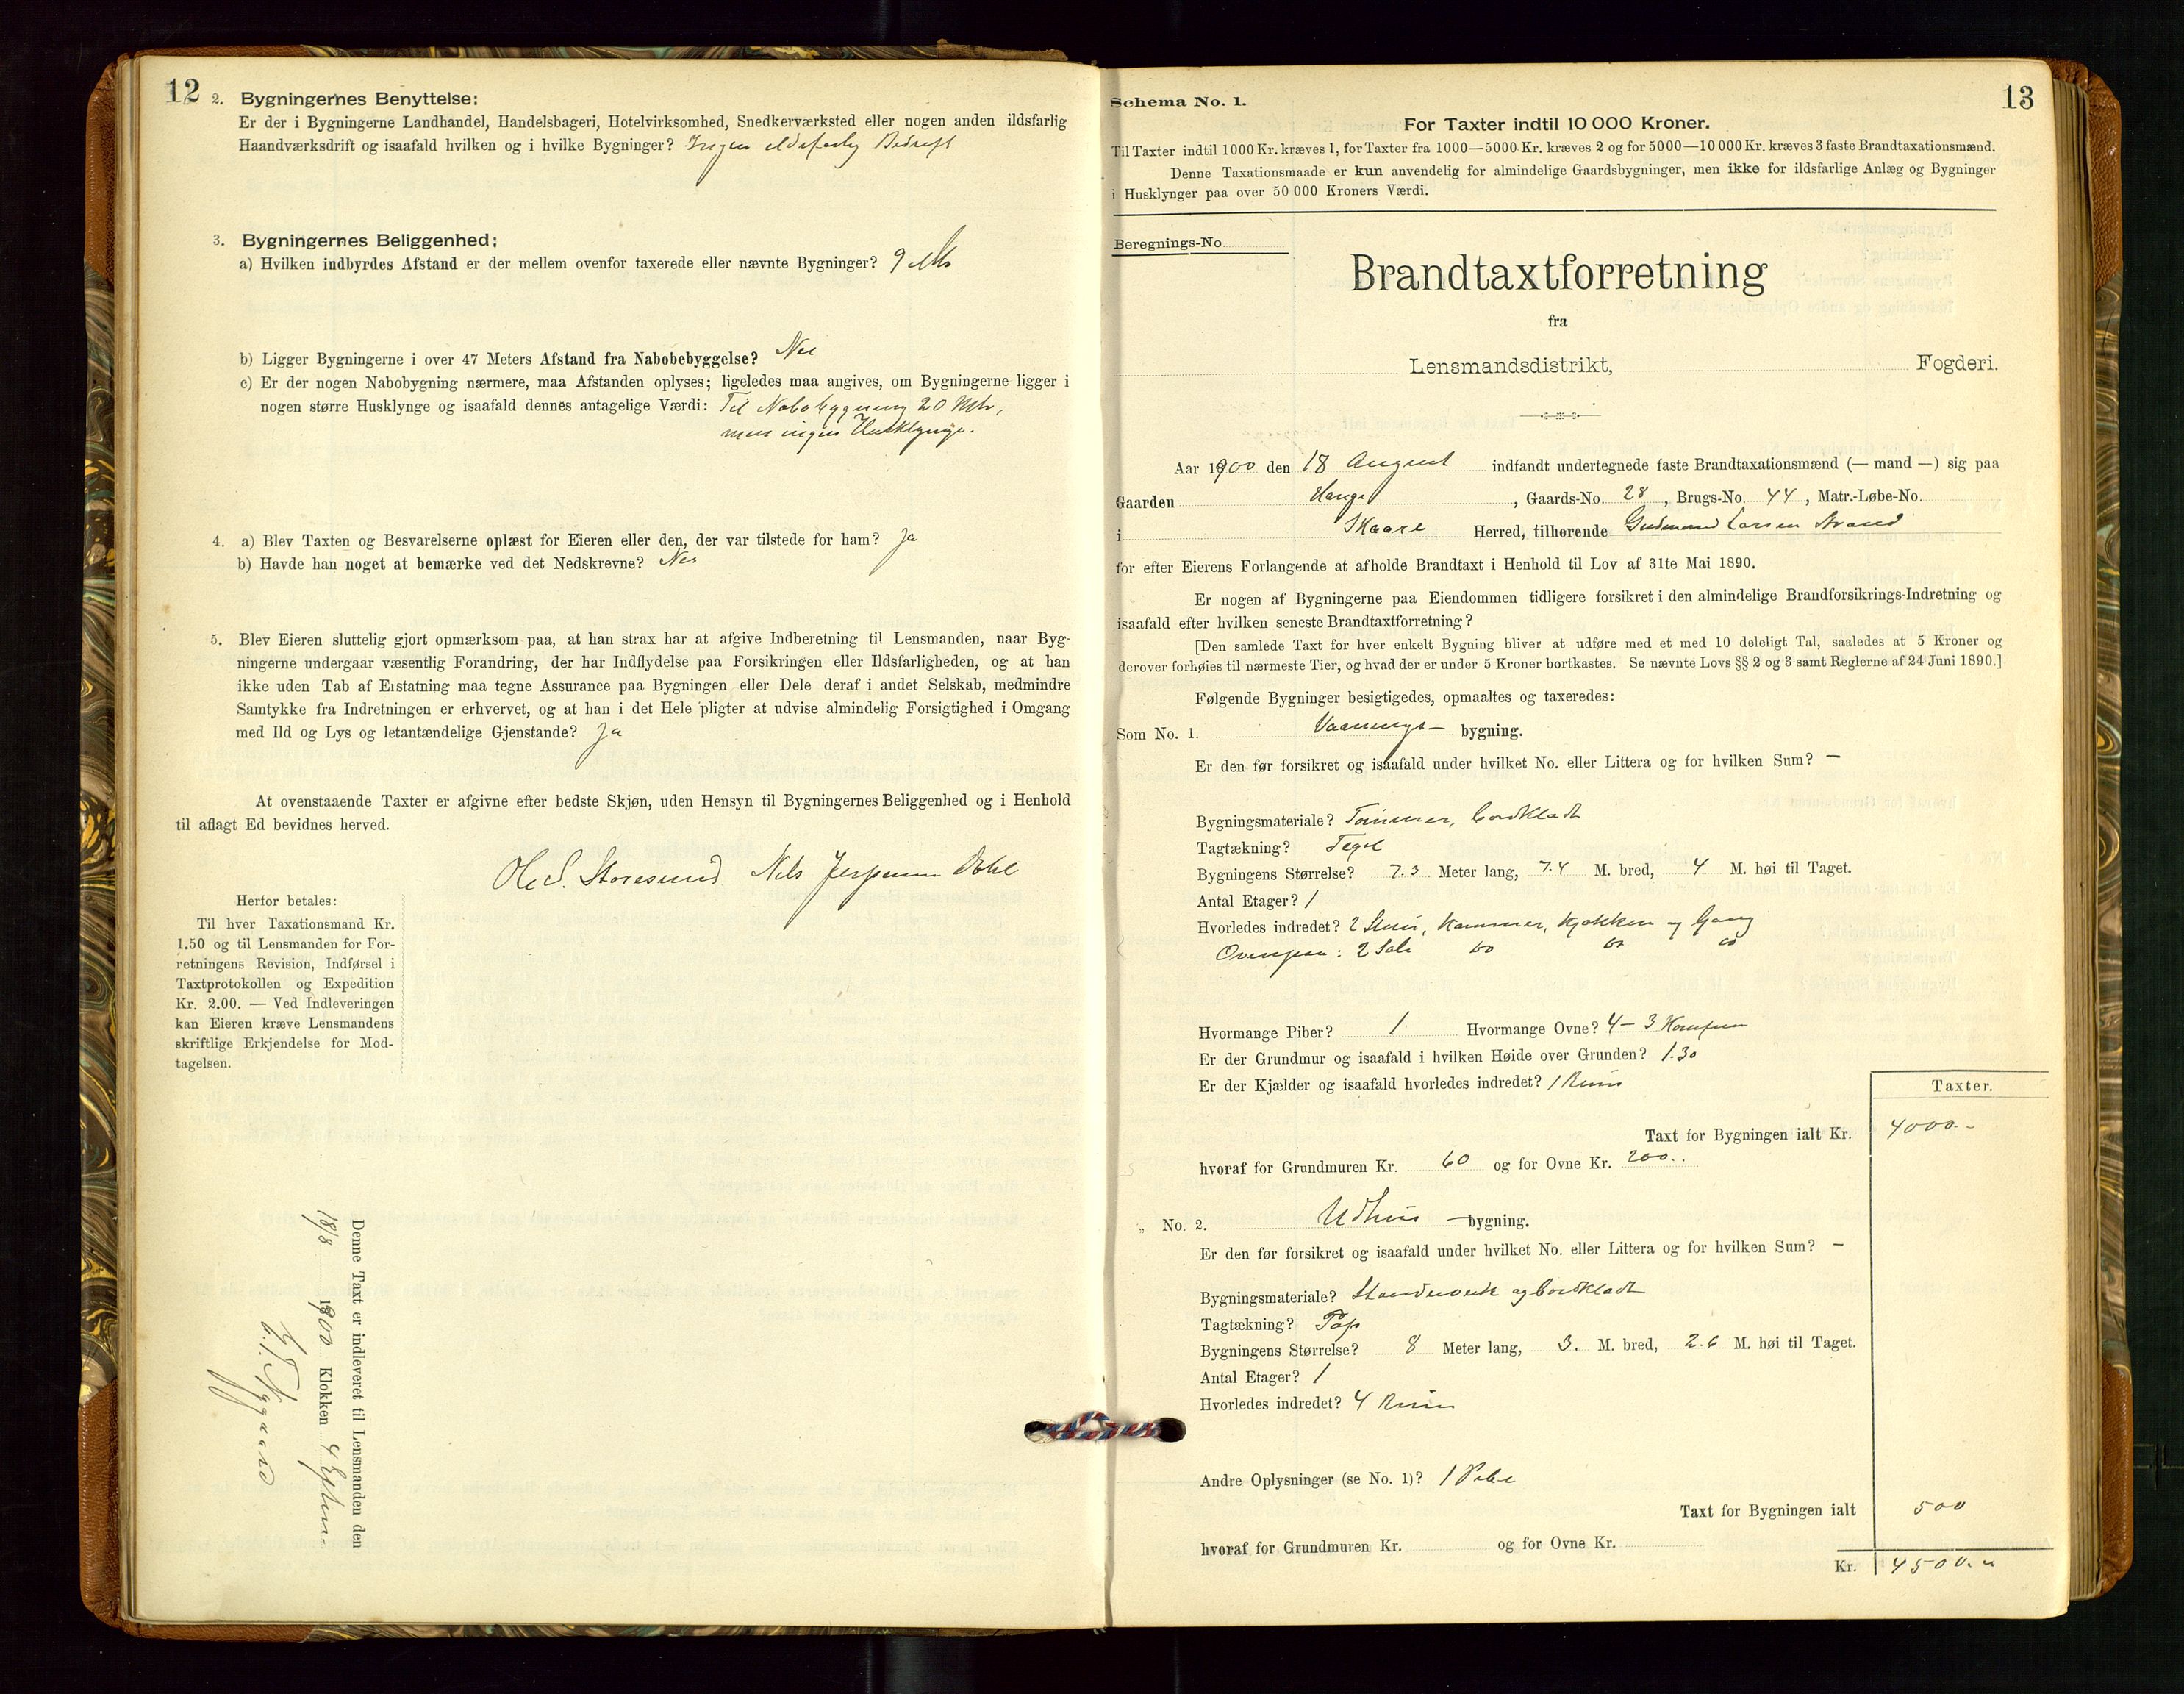 12
2. Bygningernes Benyttelse:
Er der i Bygningerne Landhandel, Handelsbageri, Hotelvirksomhed, Snedkerværksted eller nogen anden ildsfarlig
Haandværksdrift og isaafald hvilken og i hvilke Bygninger? Ingen ildsfarlig Bedrift
3. Bygningernes Beliggenhed:
a) Hvilken indbyrdes Afstand er der mellem ovenfor taxerede eller nævnte Bygninger? 9 Mtr
b) Ligger Bygningerne i over 47 Meters Afstand fra Nabobebyggelse? Nei
c) Er der nogen Nabobygning nærmere, maa Afstanden oplyses; ligeledes maa angives, om Bygningerne ligger i
nogen større Husklynge og isaafald dennes antagelige Værdi: Til Nabobygning 20 Mtr,
men ingen Husklynge.
4. a) Blev Taxten og Besvarelserne oplæst for Eieren eller den, der var tilstede for ham? Ja
b) Havde han noget at bemærke ved det Nedskrevne? Nei
5. Blev Eieren sluttelig gjort opmærksom paa, at han strax har at afgive Indberetning til Lensmanden, naar Byg-
ningerne undergaar væsentlig Forandring, der har Indflydelse paa Forsikringen eller Ildsfarligheden, og at han
ikke uden Tab af Erstatning maa tegne Assurance paa Bygningen eller Dele deraf i andet Selskab, medmindre
Samtykke fra Indretningen er erhvervet, og at han i det Hele pligter at udvise almindelig Forsigtighed i Omgang
med Ild og Lys og letantændelige Gjenstande? Ja
At ovenstaaende Taxter er afgivne efter bedste Skjøn, uden Hensyn til Bygningernes Beliggenhed og i Henhold
til aflagt Ed bevidnes herved.
Ole S. Storesund Nils Jespersen Dahl
Herfor betales:
Til hver Taxationsmand Kr.
1.50 og til Lensmanden for For-
retningens Revision, Indførsel i
Taxtprotokollen og Expedition
Kr. 2.00. — Ved Indleveringen
kan Eieren kræve Lensmandens
skriftlige Erkjendelse for Mod-
tagelsen.
Denne Taxt er indleveret til Lensmanden den
18/8 1900 Klokken 4 Efterm.
Nygaard
13
Schema No. 1.
For Taxter indtil 10 000 Kroner.
Til Taxter indtil 1000 Kr. kræves 1, for Taxter fra 1000—5000 Kr. kræves 2 og for 5000—10 000 Kr. kræves 3 faste Brandtaxationsmænd.
Denne Taxationsmaade er kun anvendelig for almindelige Gaardsbygninger, men ikke for ildsfarlige Anlæg og Bygninger
i Husklynger paa over 50 000 Kroners Værdi.
Beregnings-No.
Brandtaxtforretning
fra
Lensmandsdistrikt, Fogderi.
Aar 1900 den 18 August indfandt undertegnede faste Brandtaxationsmænd (— mand —) sig paa
Gaarden Hauge, Gaards-No. 28, Brugs-No. 44, Matr.-Løbe-No.
i Skaare Herred, tilhørende Gudmund Larsen Strand
for efter Eierens Forlangende at afholde Brandtaxt i Henhold til Lov af 31te Mai 1890.
Er nogen af Bygningerne paa Eiendommen tidligere forsikret i den almindelige Brandforsikrings-Indretning og
isaafald efter hvilken seneste Brandtaxtforretning?
[Den samlede Taxt for hver enkelt Bygning bliver at udføre med et med 10 deleligt Tal, saaledes at 5 Kroner og
derover forhøies til nærmeste Tier, og hvad der er under 5 Kroner bortkastes. Se nævnte Lovs §§ 2 og 3 samt Reglerne af 24 Juni 1890.]
Følgende Bygninger besigtigedes, opmaaltes og taxeredes:
Som No. 1. Vaanings— bygning.
Er den før forsikret og isaafald under hvilket No. eller Littera og for hvilken Sum? —
Bygningsmateriale? Tømmer, bordklædt
Tagtækning? Tegel
Bygningens Størrelse? 7.3 Meter lang, 7.4 M. bred, 4 M. høi til Taget.
Antal Etager? 1
Hvorledes indredet? 2 Stuer, Kammer, Kjøkken og Gang
Ovenpaa: 2 Sale do do do
Hvormange Piber? 1 Hvormange Ovne? 4 — 3 Komfurer
Er der Grundmur og isaafald i hvilken Høide over Grunden? 1.30
Er der Kjælder og isaafald hvorledes indredet? 1 Rum
Taxter.
Taxt for Bygningen ialt Kr. 4000.-
hvoraf for Grundmuren Kr. 60 og for Ovne Kr. 200..
„ No. 2. Udhus —bygning.
Er den før forsikret og isaafald under hvilket No. eller Littera og for hvilken Sum? —
Bygningsmateriale? Standerverk og bordklædt
Tagtækning? Pap
Bygningens Størrelse? 8 Meter lang, 3. M. bred, 2.6 M. høi til Taget.
Antal Etager? 1
Hvorledes indredet? 4 Rum
Andre Oplysninger (se No. 1)? 1 Pibe
Taxt for Bygningen ialt 500
hvoraf for Grundmuren Kr. og for Ovne Kr.
Kr. 4500.